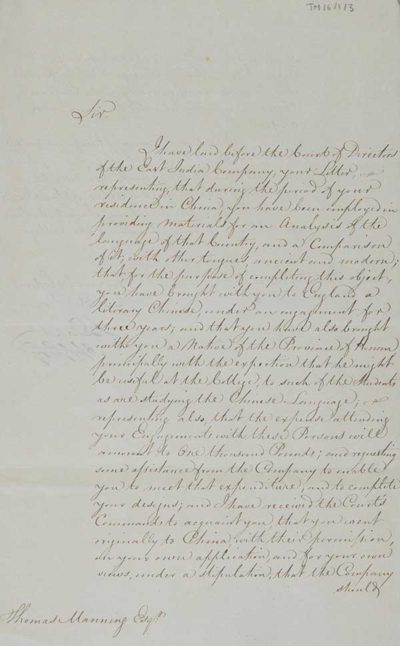 TM 16/1/3
Sir
I have laid before the Court of Directors
of the East India Company, your Letter,
representing, that during the period of your
residence in China, you have been employed in
providing materials for an Analysis of the
language of that Country, and a Comparison
of it, with other tongues ancient and modern;
that for the purpose of completing this object,
you have brought with you to England a
literary Chinese, under an engagement for
three years; and that you have also brought
with you a Native of the Province of
principally with the expection that he might
be useful at the College, to such of the Students
as are studying the Chinese Language; &
representing also, that the expense attending
your Engagements with these Persons will
amount to One thousand Pounds; and requesting
some assistance from the Company to enable
you to meet that expenditure, and to complete
your designs; and I have received the Court's
Commands to acquaint you that you went
originally to China, with their permission,
on your own application, and for your own
views, under a stipulation, that the Company
should
Thomas Manning Esqr.